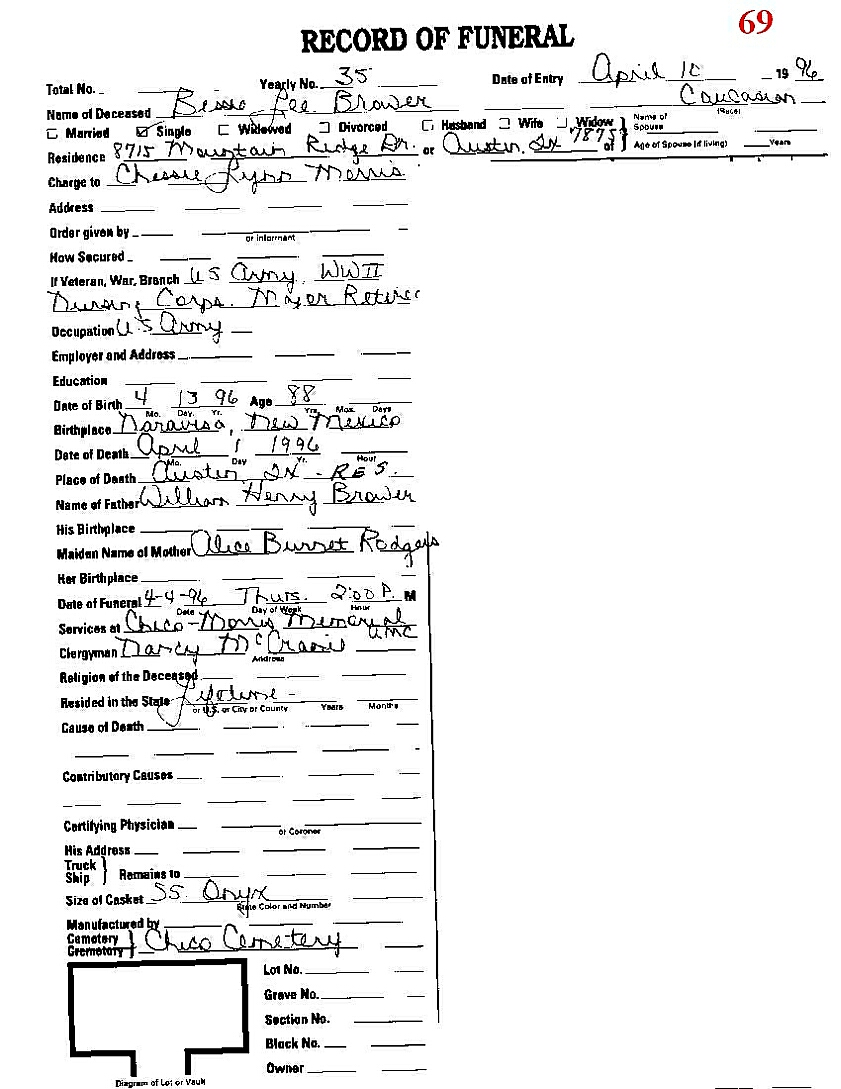 69
RECORD OF FUNERAL
Total No. Yearly No. 35 Date of Entry April 10 1996
Name of Deceased Bessie Lee Brower Caucasian
(Race)
Married Single Widowed Divorced Husband Wife Widow of Name of Spouse
Residence 8715 Mountain Ridge Dr. or Austin, Tx 7875 Age of Spouse (if living) Years
Charge to Chessie Lynn Morris
Address
Order given by
or informant
How Secured
If Veteran, War, Branch US Army, WWII
Nursing Corps. Majer Retired
Occupation U.S Army
Employer and Address
Education
Date of Birth 4 13 96 Age 88
Mo. Day. Yr. Yrs. Mos. Days
Birthplace Naravisa, New Mexico
Date of Death April 1 1996
Mo. Day Yr. Hour
Place of Death Austin Tx - RES.
Name of Father William Henry Brower
His Birthplace
Maiden Name of Mother Alice Burnet Rodgers
Her Birthplace
Date of Funeral 4-4-96 Thurs. 2:00 P. M
Date Day of Week Hour
Services at Chico-Morris Memorial UMC
Clergyman Nancy
Address
Religion of the Deceased
Resided in the State Lifetime -
or U.S. or City or County Years Months
Cause of Death
Contributory Causes
Certifying Physician
or Coroner
His Address
Truck
Ship } Remains to
Size of Casket SS. Onyx
State Color and Number
Manufactured by
Cemetery
Crematory } Chico Cemetery
Lot No.
Grave No.
Section No.
Block No.
Owner
Diagram of Lot or Vault